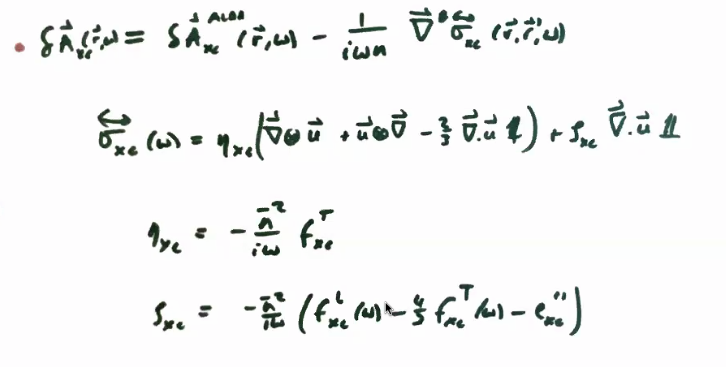 • δA⃗_xc(r⃗,ω) = δA⃗_xc^ALDA (r⃗,ω) − 1/(iωn) ∇⃗ • σ⃡_xc (r⃗,r⃗',ω)
σ⃡_xc (ω) = η_xc (∇⃗⊗u⃗ + u⃗⊗∇⃗ − 2/3 ∇⃗.u⃗ 𝟙) + ζ_xc ∇⃗.u⃗ 𝟙
η_xc = − n̄²/(iω) f_xc^T
ζ_xc = − n̄²/(iω) (f_xc^L (ω) − 4/3 f_xc^T (ω) − e_xc'')